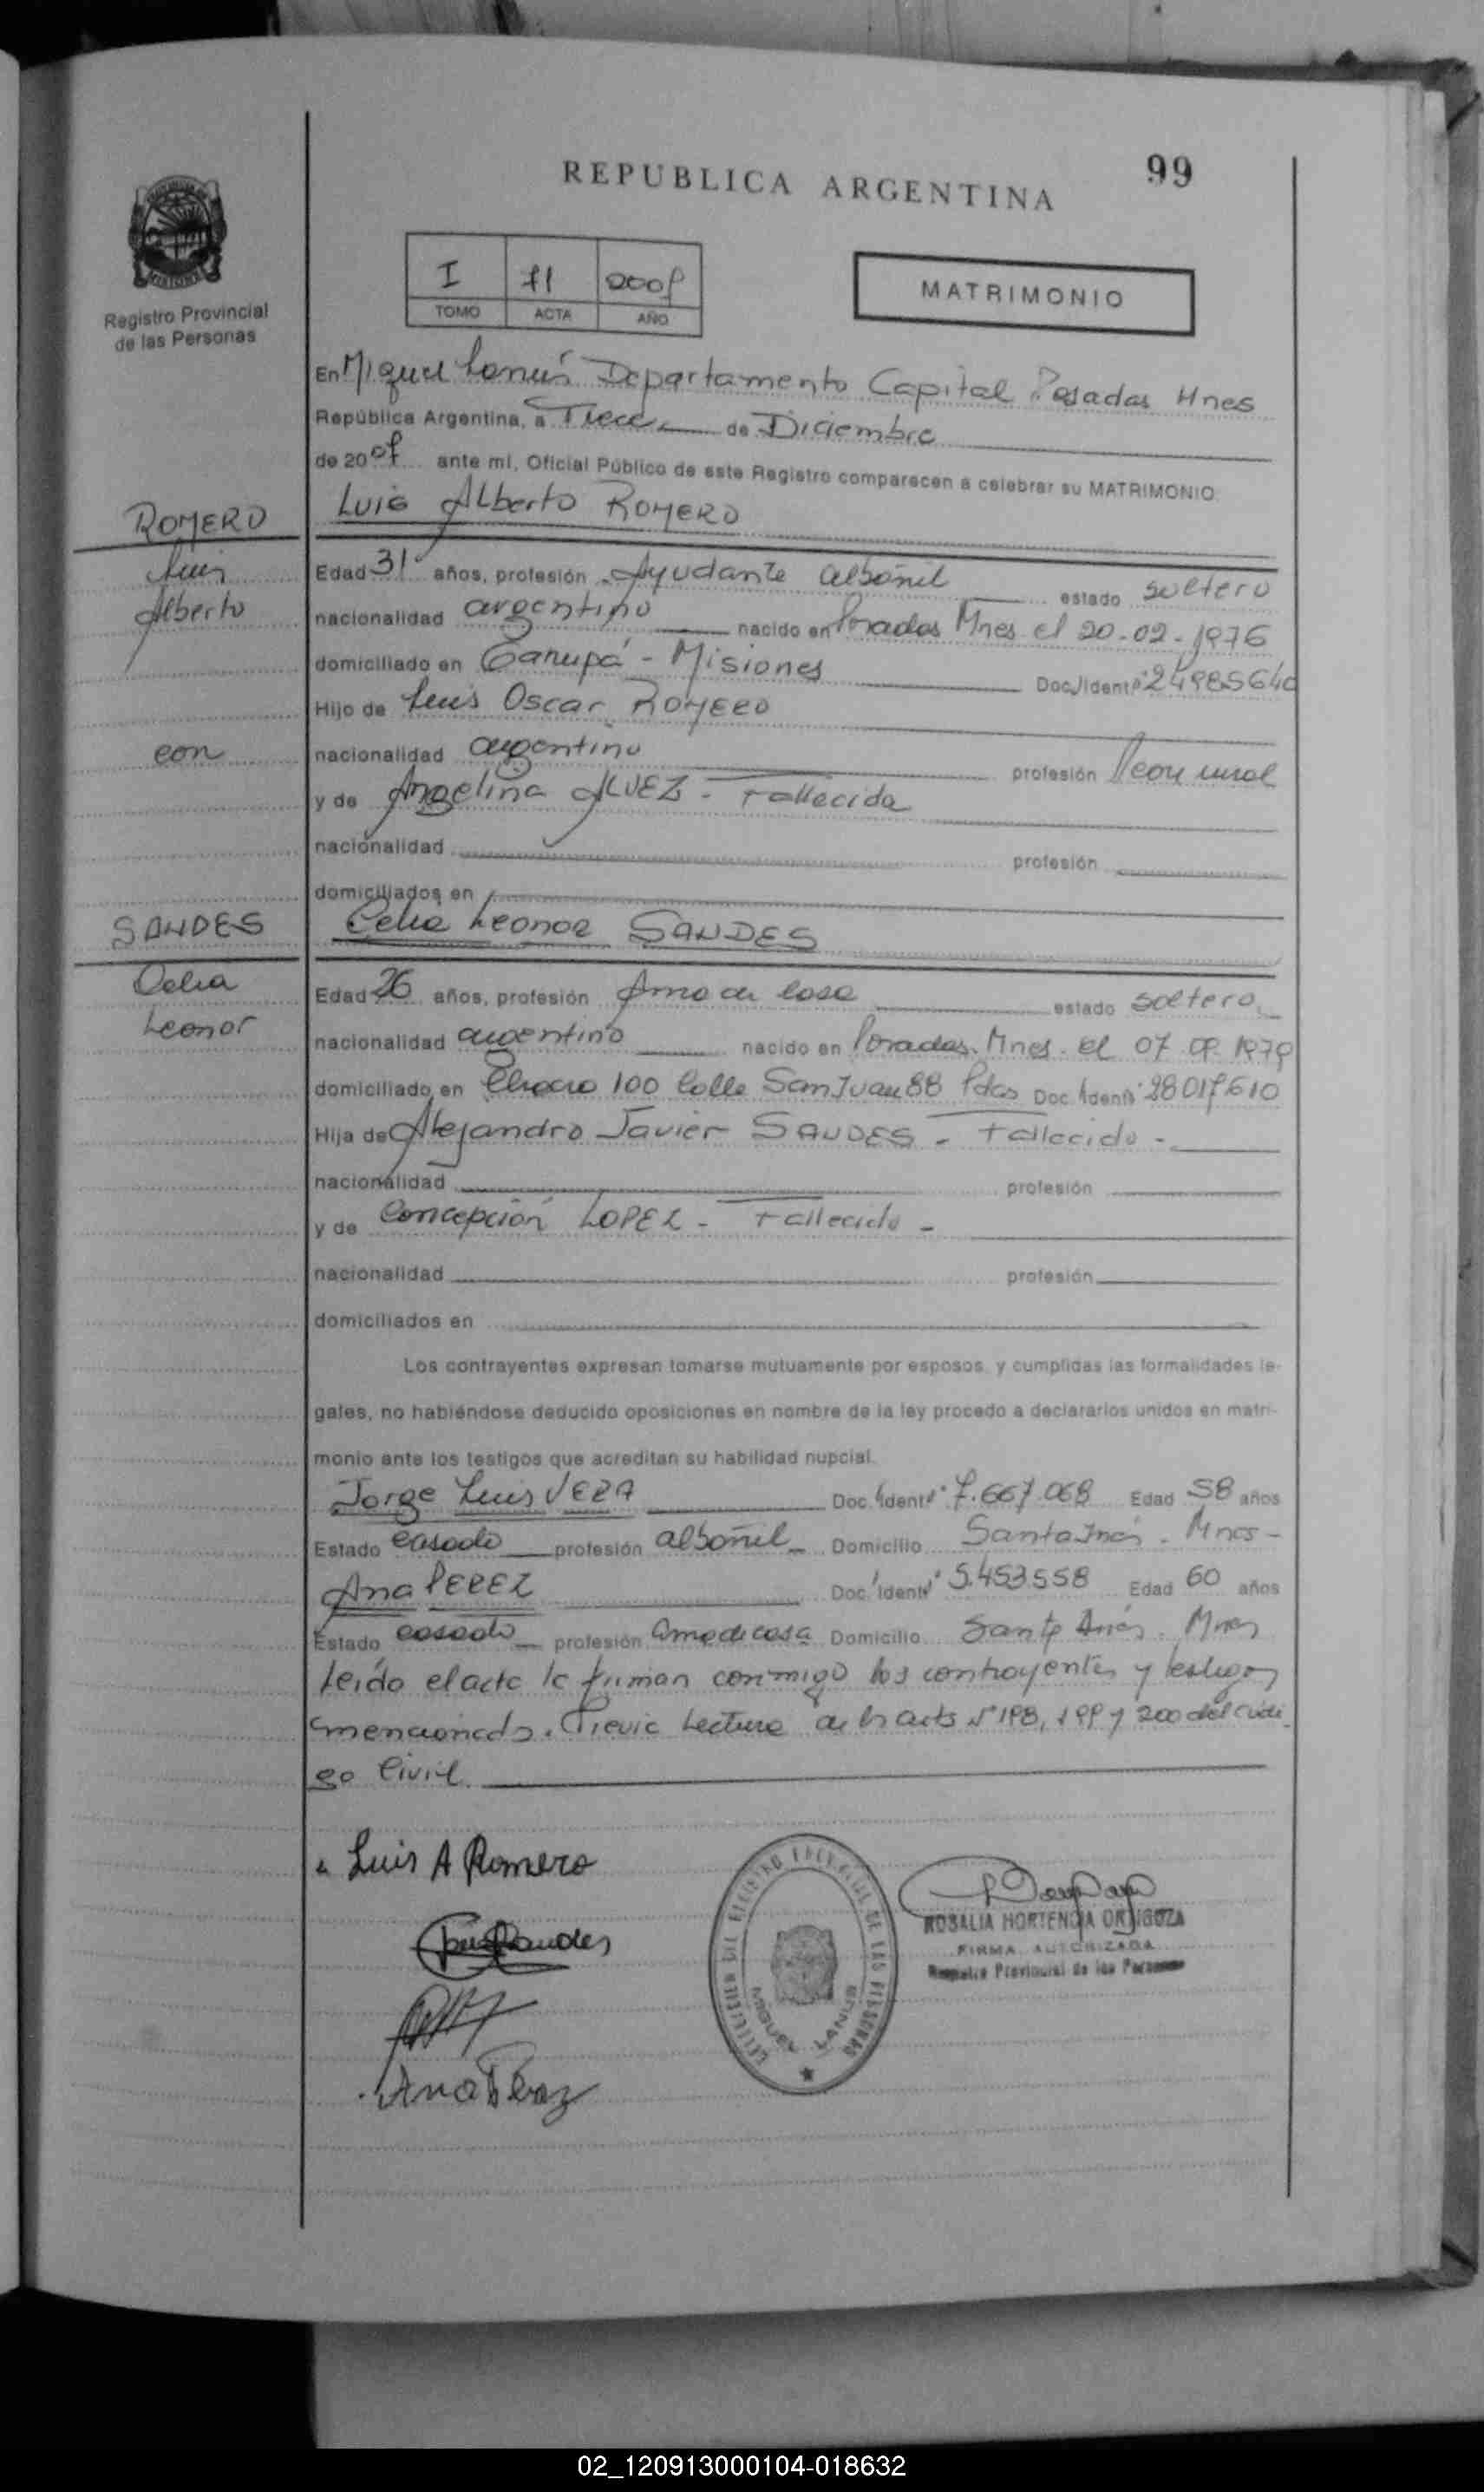 99
REPUBLICA ARGENTINA
I
71
2007
TOMO
ACTA
AÑO
MATRIMONIO
Registro Provincial
de las Personas
En Miguel Lanús Departamento Capital Posadas Mnes
República Argentina, a Trece de Diciembre
de 2007 ante mí, Oficial Público de este Registro comparecen a celebrar su MATRIMONIO
ROMERO
Luis Alberto ROMERO
Luis
Edad 31 años, profesión Ayudante albañil estado soltero
Alberto
nacionalidad argentino nacido en Posadas Mnes el 20-02-1976
domiciliado en Garupá - Misiones Doc. Ident. 24985640
Hijo de Luis Oscar ROMERO
con
nacionalidad argentino profesión Peon rural
y de Angelina ALVEZ - Fallecida
nacionalidad profesión
domiciliados en
SANDES
Celia Leonor SANDES
Celia
Edad 26 años, profesión Ama de Casa estado soltera
Leonor
nacionalidad argentino nacido en Posadas Mnes el 07 1979
domiciliado en 100 Calle San Juan 88 Pdas Doc. Ident. 28017610
Hija de Alejandro Javier SANDES - Fallecido -
nacionalidad profesión
y de Concepción LOPEZ - Fallecida -
nacionalidad profesión
domiciliados en
Los contrayentes expresan tomarse mutuamente por esposos, y cumplidas las formalidades le-
gales, no habiéndose deducido oposiciones en nombre de la ley procedo a declararlos unidos en matri-
monio ante los testigos que acreditan su habilidad nupcial.
Jorge Luis VERA Doc. Ident. 7.667.068 Edad 58 años
Estado casado profesión albañil Domicilio Santa Inés. Mnes -
Ana PEREZ Doc. Ident. 5.453.558 Edad 60 años
Estado casada profesión ama de casa Domicilio Santa Inés. Mnes
Leído el acta la firman conmigo los contrayentes y testigos
mencionados. Previa Lectura de los arts Nº 198, 199 y 200 del Códi
go Civil.
Luis A Romero
Sandes
Ana Perez
MIGUEL LANUS
ROSALIA HORTENCIA ORTIGOZA
FIRMA AUTORIZADA
Registro Provincial de las Personas
02_120913000104-018632